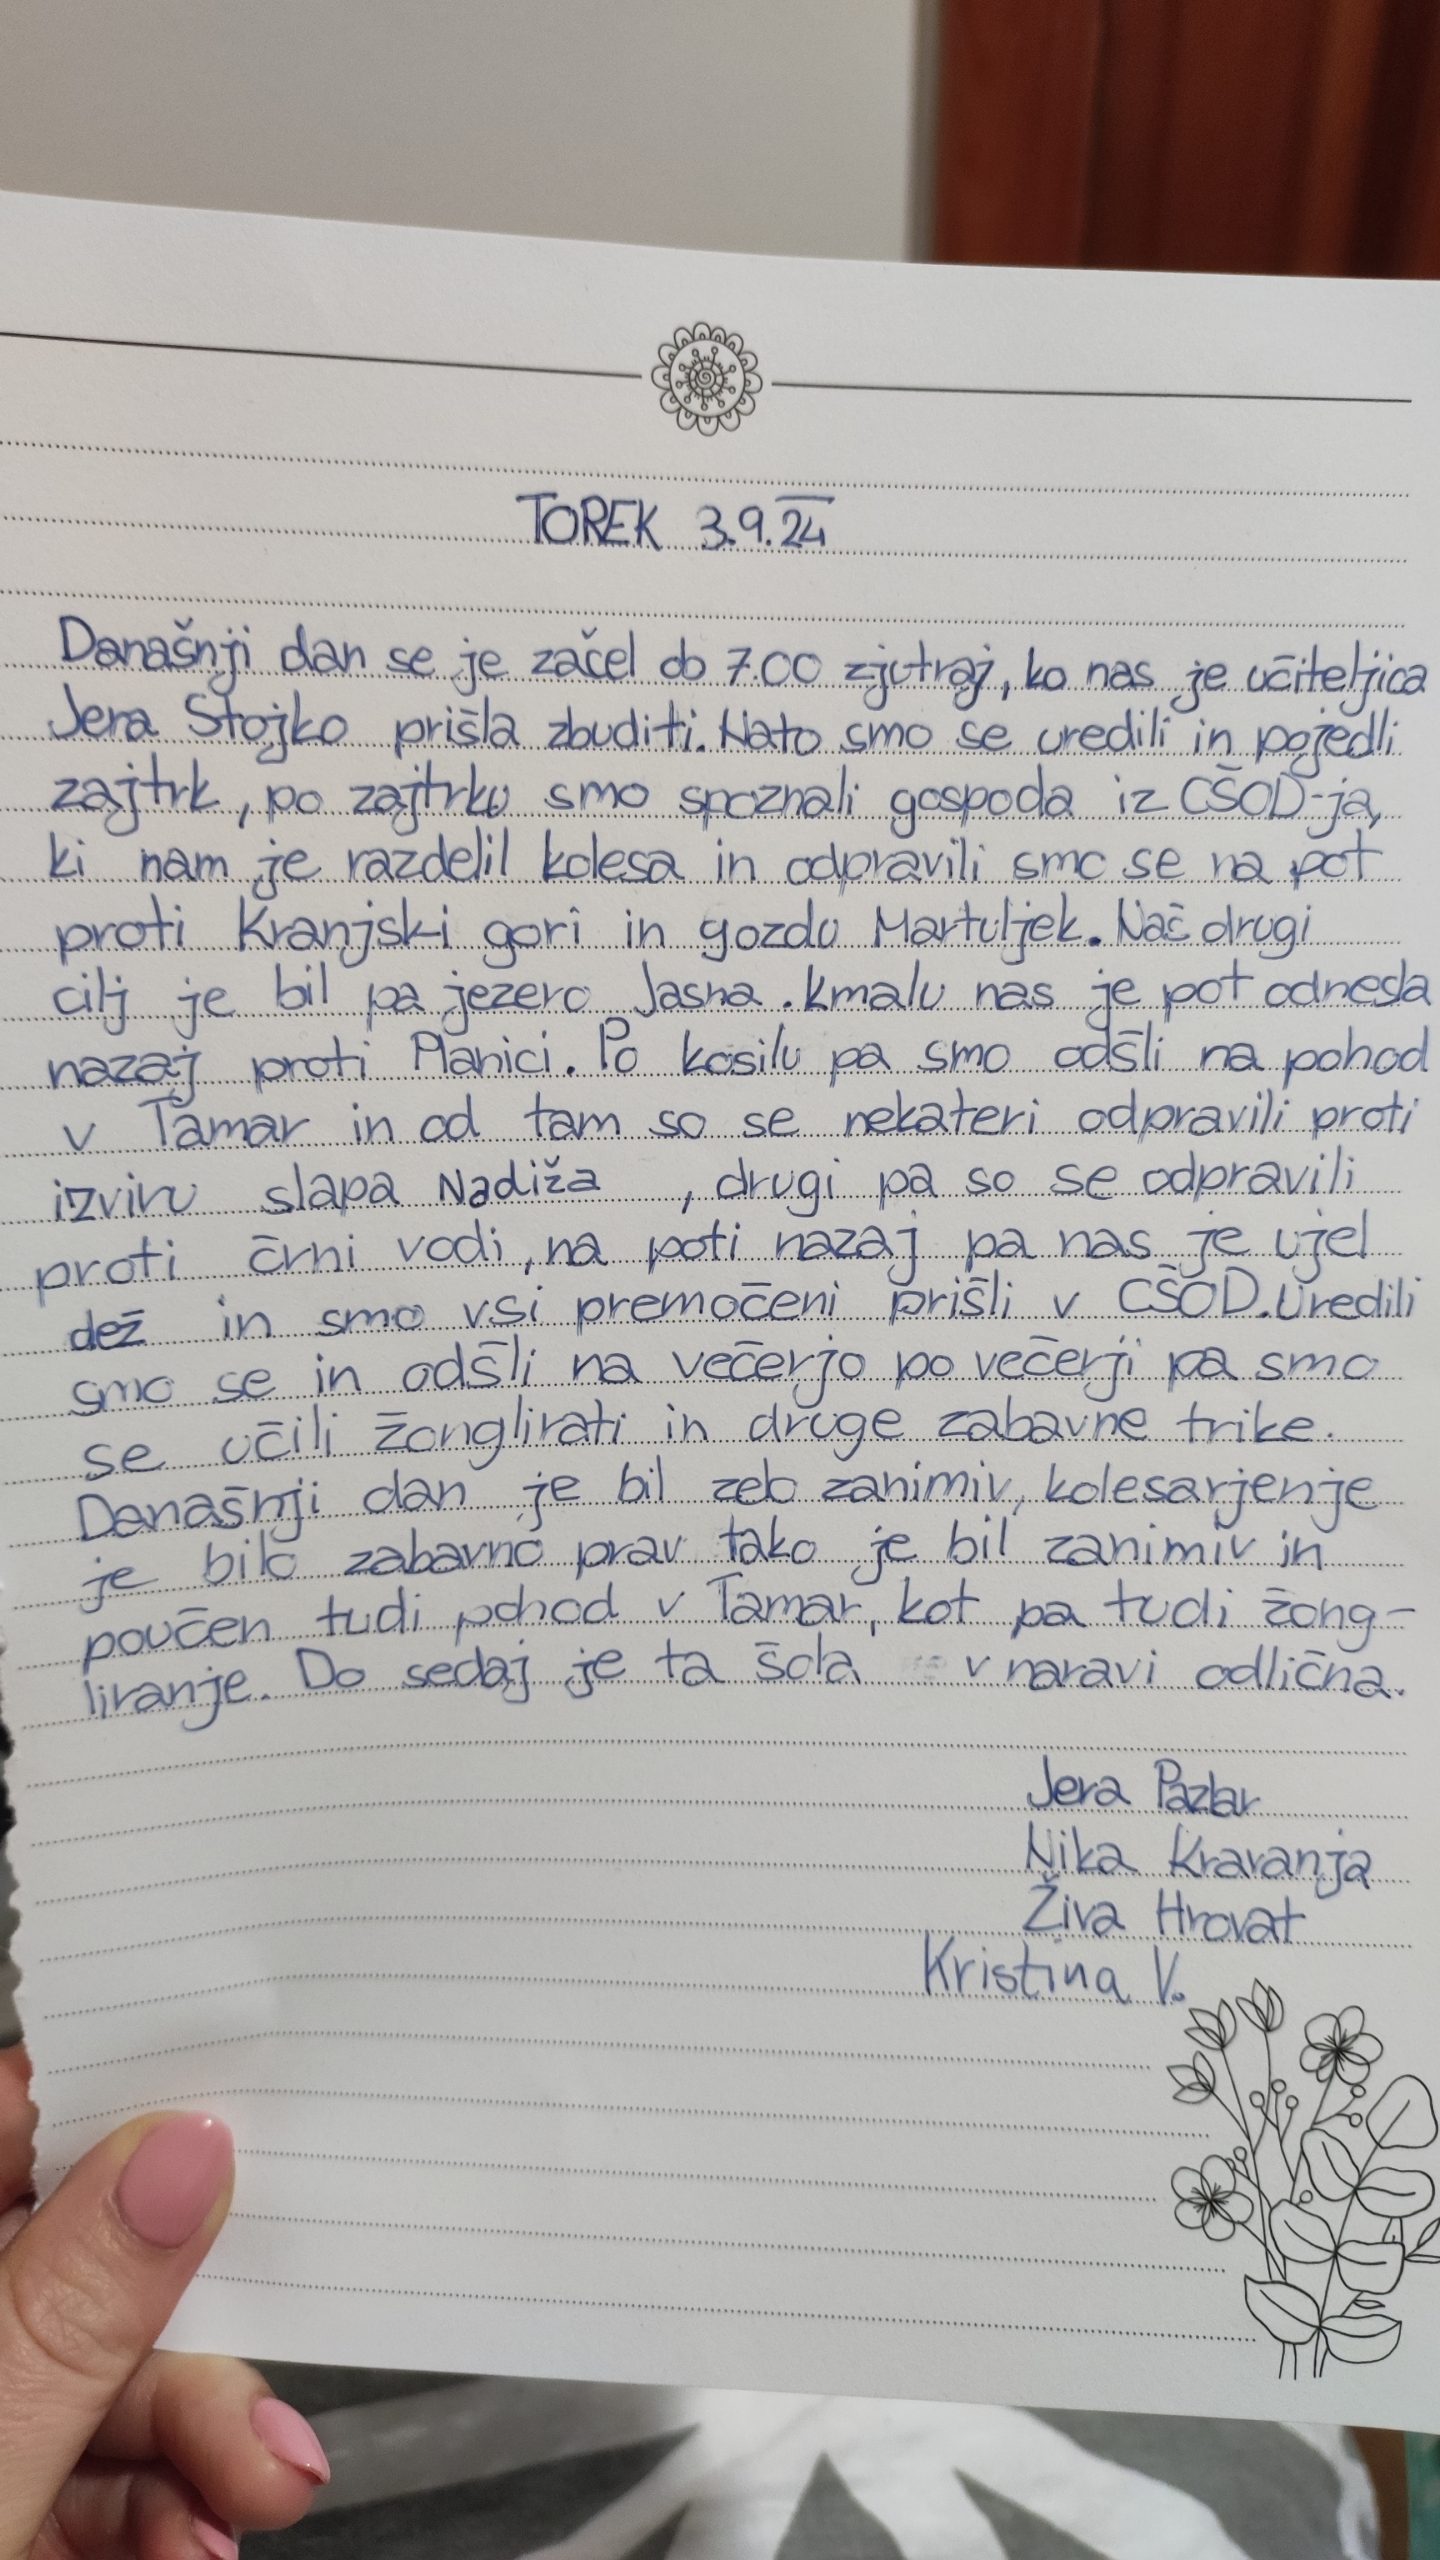 TOREK 3.9.24
Današnji dan se je začel ob 7.00 zjutraj, ko nas je učiteljica
Jera Stojko prišla zbuditi. Nato smo se uredili in pojedli
zajtrk, po zajtrku smo spoznali gospoda iz CŠOD-ja,
ki nam je razdelil kolesa in odpravili smo se na pot
proti Kranjski gori in gozdu Martuljek. Nač drugi
cilj je bil pa jezero Jasna. Kmalu nas je pot odnesla
nazaj proti Planici. Po kosilu pa smo odšli na pohod
v Tamar in od tam so se nekateri odpravili proti
izviru slapa Nadiža , drugi pa so se odpravili
proti črni vodi, na poti nazaj pa nas je ujel
dež in smo vsi premočeni prišli v CŠOD. Uredili
smo se in odšli na večerjo po večerji pa smo
se učili žonglirati in druge zabavne trike.
Današnji dan je bil zelo zanimiv, kolesarjenje
je bilo zabavno prav tako je bil zanimiv in
poučen tudi pohod v Tamar, kot pa tudi žong-
liranje. Do sedaj je ta šola v naravi odlična.
Jera Pazlar
Nika Kravanja
Živa Hrovat
Kristina V.